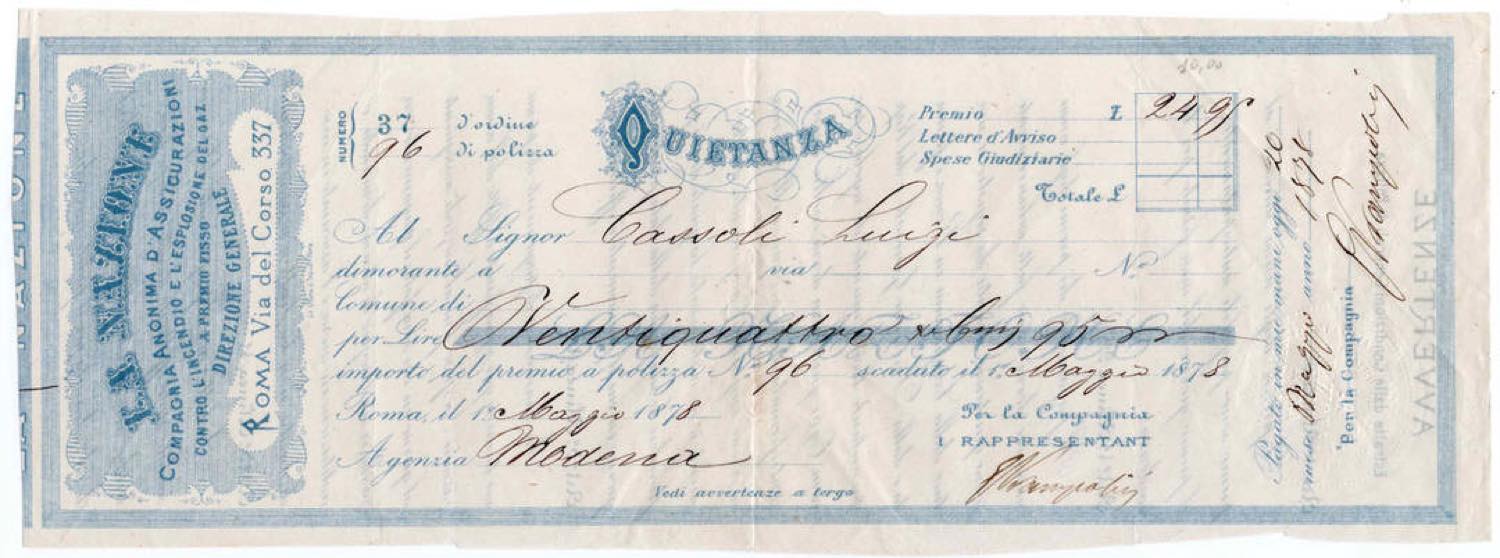 LA NAZIONE
LA NAZIONE
COMPAGNIA ANONIMA D'ASSICURAZIONI
CONTRO L'INCENDIO E L'ESPLOSIONE DEL GAZ
A PREMIO FISSO
DIREZIONE GENERALE
ROMA Via del Corso 337
NUMERO
37 d'ordine
96 di polizza
QUIETANZA
10,00
Premio £ 24 95
Lettere d'Avviso
Spese Giudiziarie
Totale £
Al Signor Cassoli Luigi
dimorante a via N.º
Comune di
per Lire Ventiquattro & 95
importo del premio a polizza N.º 96 scaduto il 1. Maggio 1878
Roma, il 1. Maggio 1878
Agenzia Modena
Per la Compagnia
I RAPPRESENTANT
Vedi avvertenze a tergo
Pagate in mie mani oggi 20
mese Maggio anno 1878
Per la Compagnia
AVVERTENZE